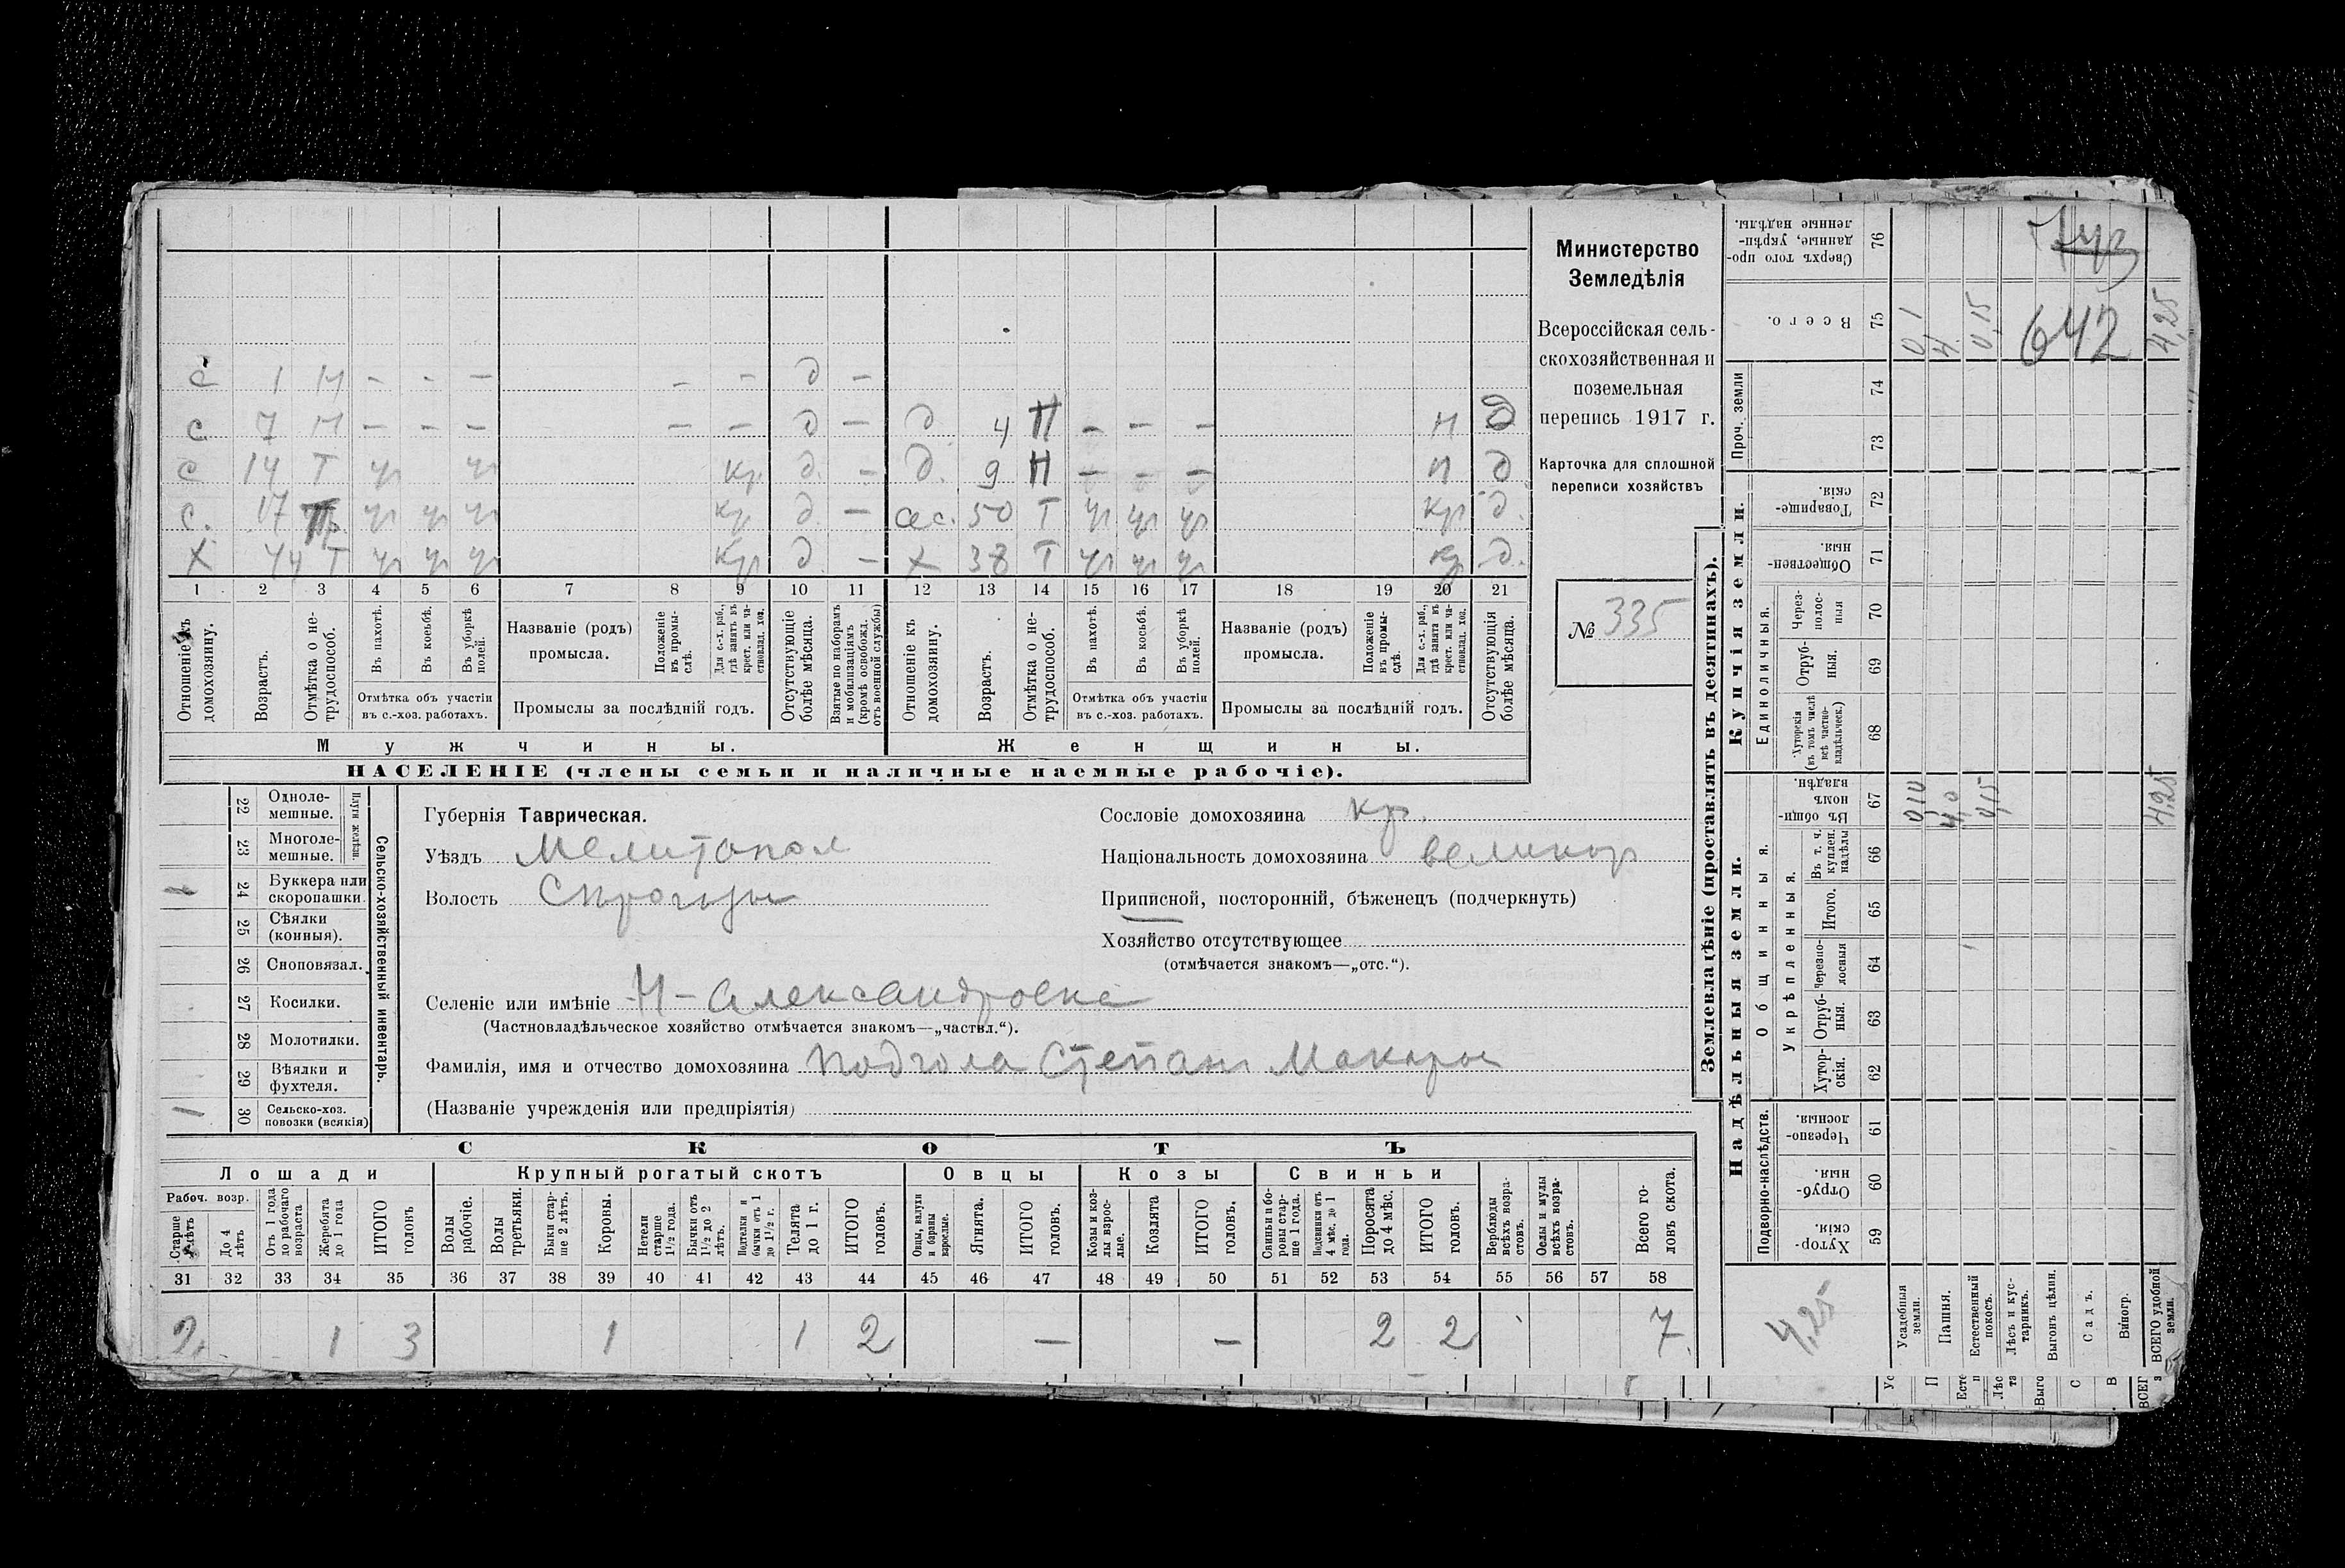 с 1 Н – – – – – д –
с 7 Н – – – – – д – д 4 Н – – – Н д
с 14 Т ур ур кр д. – д. 9 Н – – – Н д
с. 17 ур ур ур кр д. – сес. 50 Т ур ур ур кр д.
х 44 Т ур ур ур кр д. – х 38 Т ур ур ур кр д.
1 2 3 4 5 6 7 8 9 10 11 12 13 14 15 16 17 18 19 20 21
Отношеніе къ домохозяину.
Возрастъ.
Отмѣтка о нетрудоспособ.
Въ пахотѣ.
Въ косьбѣ.
Въ уборкѣ полей.
Отмѣтка объ участіи въ с.-хоз. работахъ.
Названіе (родъ) промысла.
Положеніе въ промыслѣ.
Для с.-х. раб., гдѣ занятъ въ крест. или частновлад. хоз.
Промыслы за послѣдній годъ.
Отсутствующіе болѣе мѣсяца.
Взятые по наборамъ и мобилизаціямъ (кромѣ освобожд. отъ военной службы)
Отношеніе къ домохозяину.
Возрастъ.
Отмѣтка о нетрудоспособ.
Въ пахотѣ.
Въ косьбѣ.
Въ уборкѣ полей.
Отмѣтка объ участіи въ с.-хоз. работахъ.
Названіе (родъ) промысла.
Положеніе въ промыслѣ.
Для с.-х. раб., гдѣ занята въ крест. или частновлад. хоз.
Промыслы за послѣдній годъ.
Отсутствующія болѣе мѣсяца.
Мужчины. Женщины.
НАСЕЛЕНІЕ (члены семьи и наличные наемные рабочіе).
Министерство
Земледѣлія
Всероссійская сель-
скохозяйственная и
поземельная
перепись 1917 г.
Карточка для сплошной
переписи хозяйствъ
№ 335
Сельско-хозяйственный инвентарь.
Плуги желѣзн.
22 Одноле-
мешные.
23 Многоле-
мешные.
24 Буккера или
скоропашки.
25 Сѣялки
(конныя).
26 Сноповязал.
27 Косилки.
28 Молотилки.
29 Вѣялки и
фухтеля.
1 30 Сельско-хоз.
повозки (всякія)
Губернія Таврическая.
Уѣздъ Мелитопол
Волость
Сословіе домохозяина кр.
Національность домохозяина великор
Приписной, посторонній, бѣженецъ (подчеркнуть)
Хозяйство отсутствующее
(отмѣчается знакомъ—„отс.“).
Селеніе или имѣніе Н-Александровка
(Частновладѣльческое хозяйство отмѣчается знакомъ—„частвл.“).
Фамилія, имя и отчество домохозяина Подгола Степан Макаров
(Названіе учрежденія или предпріятія)
СКОТЪ
Лошади Крупный рогатый скотъ Овцы Козы Свиньи
Рабоч. возр.
Старше 4 лѣтъ
До 4 лѣтъ
Отъ 1 года до рабочаго возраста
Жеребята до 1 года
ИТОГО головъ
Волы рабочіе.
Волы третьяки.
Быки старше 2 лѣтъ.
Коровы.
Нетели старше 1½ года.
Бычки отъ 1½ до 2 лѣтъ.
Подтелки и бычки отъ 1 до 1½ г.
Телята до 1 г.
ИТОГО головъ.
Овцы, валухи и бараны взрослые.
Ягнята.
ИТОГО головъ.
Козы и козлы взрослые.
Козлята
ИТОГО головъ.
Свиньи и боровы старше 1 года.
Подсвинки отъ 4 мѣс. до 1 года.
Поросята до 4 мѣс.
ИТОГО головъ.
Верблюды всѣхъ возрастовъ.
Ослы и мулы всѣхъ возрастовъ.
Всего головъ скота.
31 32 33 34 35 36 37 38 39 40 41 42 43 44 45 46 47 48 49 50 51 52 53 54 55 56 57 58
2 1 3 1 1 2 – – 2 2 7
Землевладѣніе (проставлять въ десятинахъ).
Купчія земли.
Надѣльныя земли.
Сверхъ того проданные, укрѣпленные надѣлы. 76
Всего. 75 0,1 4. 0,15 642 4,25
Проч. земли 74
73
Товарищескія. 72
Общественныя. 71
Единоличныя.
Черезполосныя 70
Отрубныя. 69
Хуторскія (въ томъ числѣ всѣ частновладѣльческ.) 68
Общинныя.
Въ общинномъ владѣн. 67 0,10 4,0 0,15 4,25
Укрѣпленныя.
Въ т. ч. куплен. надѣлы 66
Итого. 65
Черезполосныя 64
Отрубныя. 63
Хуторскія. 62
Подворно-наслѣдств.
Черезполосныя. 61
Отрубныя. 60
Хуторскія. 59
4,25
Усадебныя земли.
Пашня.
Естественный покосъ.
Лѣсъ и кустарникъ.
Выгонъ цѣлин.
Садъ.
Виногр.
ВСЕГО удобной земли.